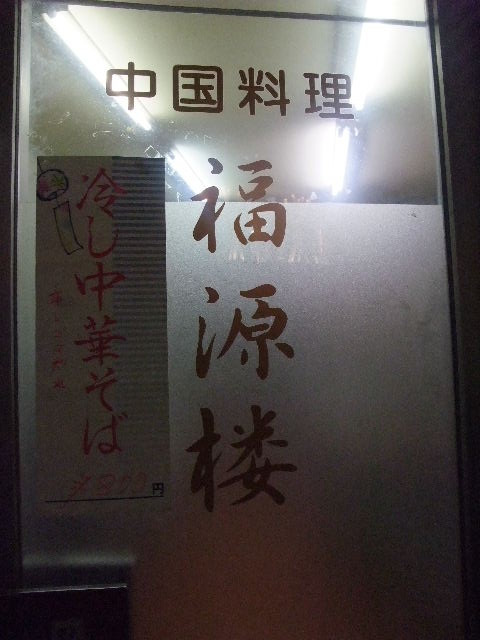 中国料理
福源楼
冷し中華そば
円